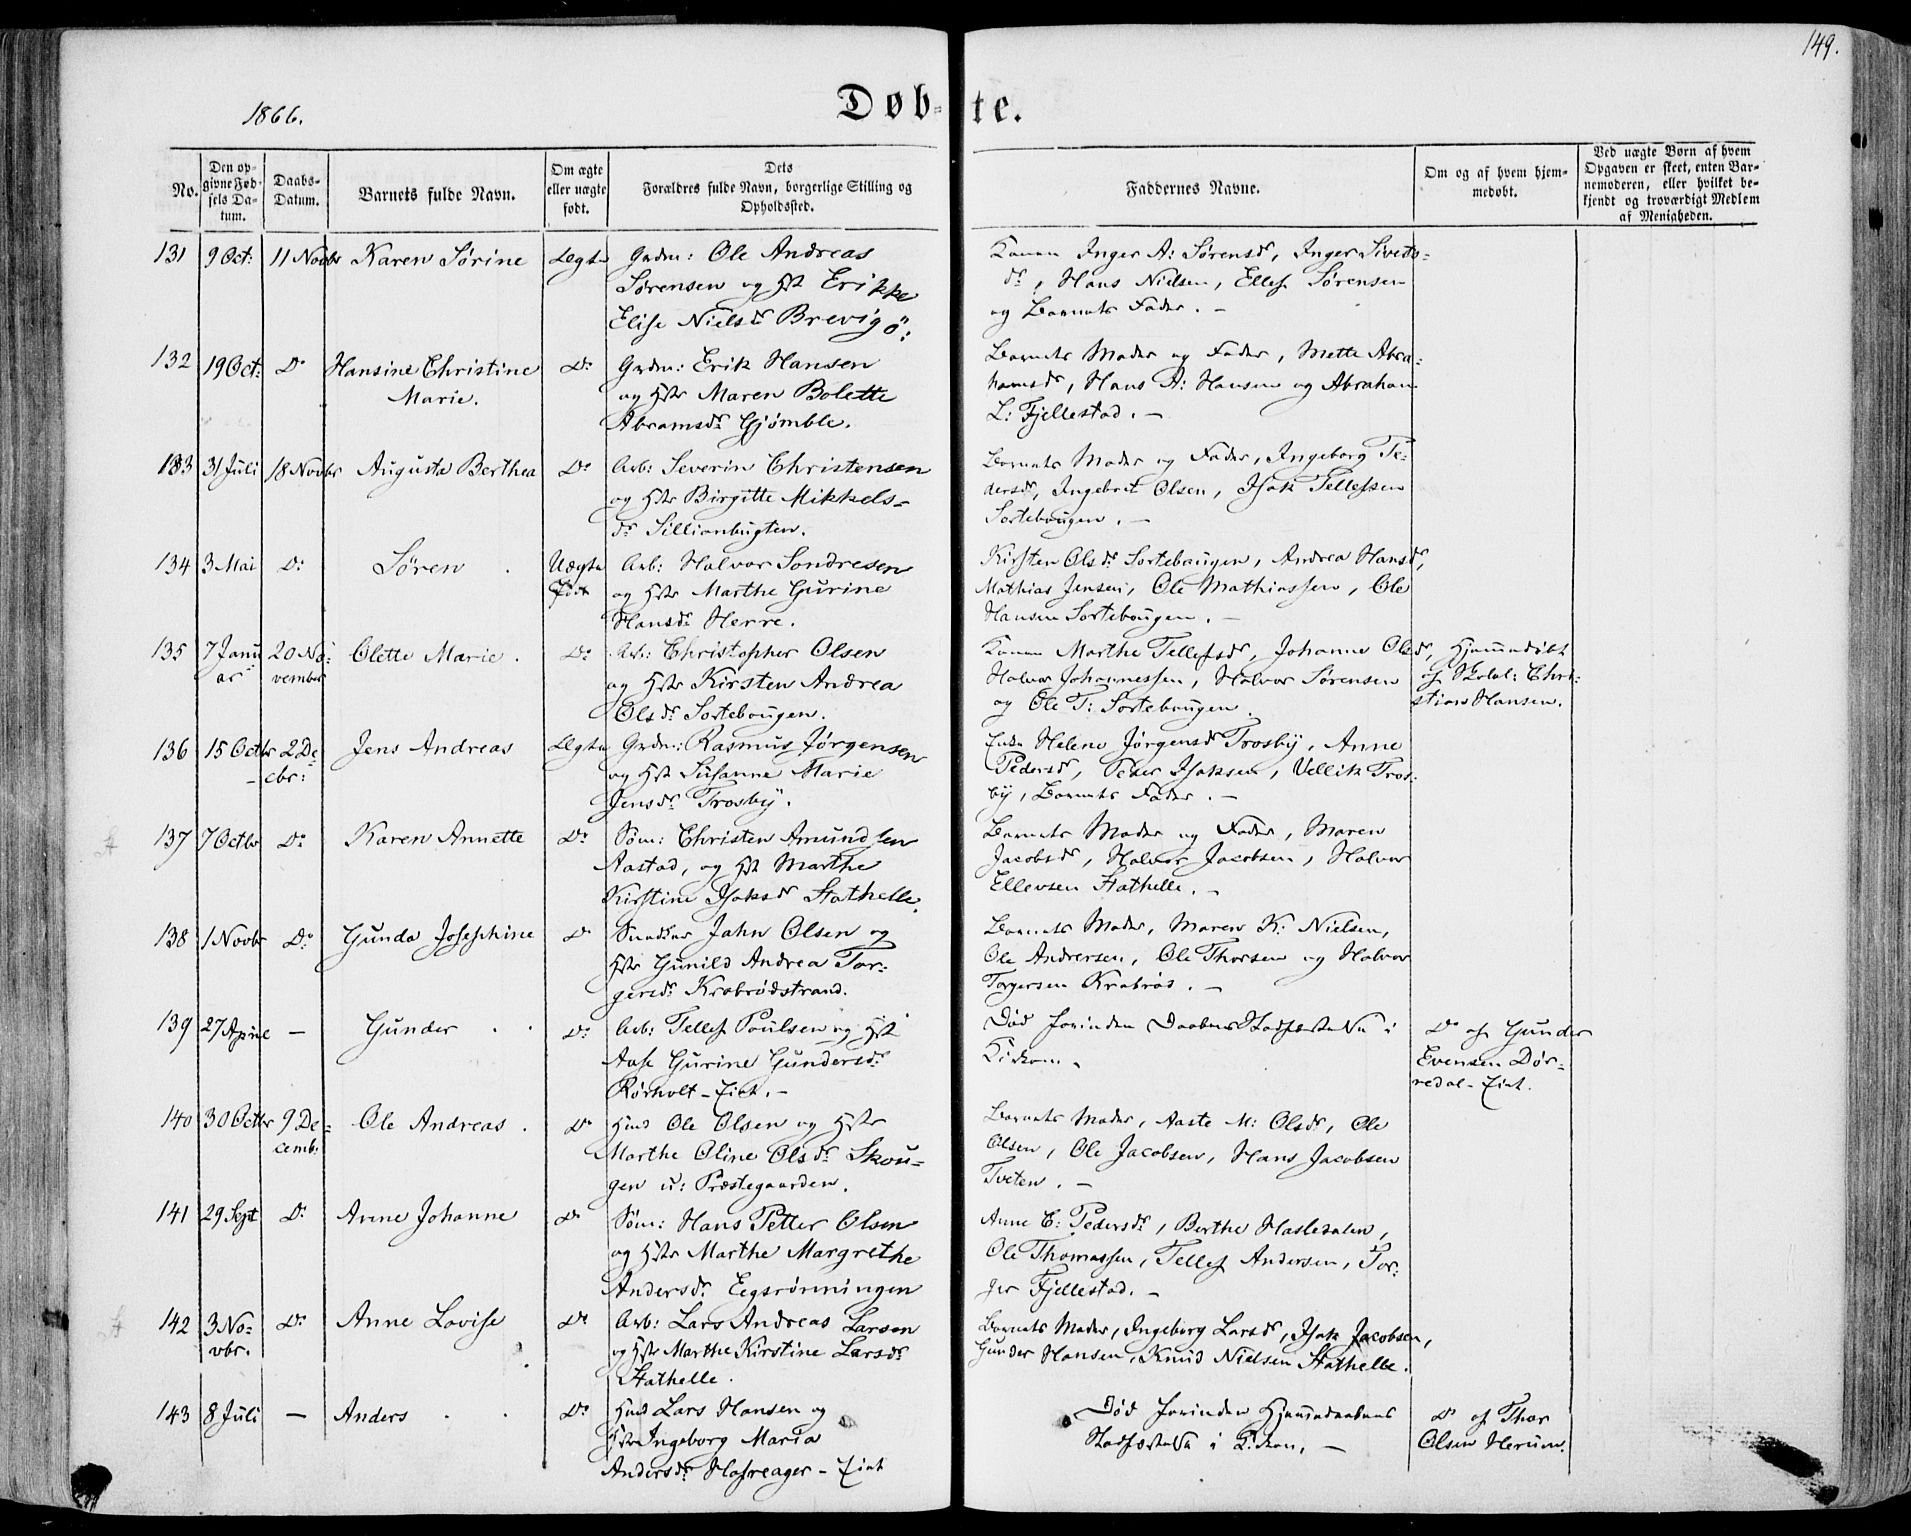 149.
1866.
Døb-te.
No.
Den op-
givne Fød-
sels Da-
tum.
Daabs-
Datum.
Barnets fulde Navn.
Om ægte
eller uægte
født.
Dets
Forældres fulde Navn, borgerlige Stilling og
Opholdssted.
Faddernes Navne.
Om og af hvem hjem-
medøbt.
Ved uægte Børn af hvem
Opgaven er skeet, enten Bar-
nemoderen, eller hvilket be-
kjendt og troværdigt Medlem
af Menigheden.
131 9 Oct: 11 Novbr Karen Sørine Ægte Grdm: Ole Andreas
Sørensen og Hst Erikke
Elise Nielsdr Brevigø:
Konen Inger A: Sørensdr, Inger Siverts-
dr, Hans Nielsen, Ellef Sørensen
og Barnets Fader. -
132 19 Oct: Do Hansine Christine
Marie.
Do Grdm: Erik Hansen
og Hstr Maren Bolette
Abramsdr Gjømble.
Barnets Moder og Fader, Mette Abra-
hamsdr, Hans A: Hansen og Abraham
L: Fjellestad. -
133 31 Juli 18 Novbr Augusta Berthea Do Arb: Severin Christensen
og Hstr Birgitte Mikkels-
dr Sillianbugten.
Barnets Moder og Fader, Ingeborg Pe-
dersdr, Ingebret Olsen, Isak Tellefsen
Sortebougen. -
134 3 Mai Do Søren Uægte
Født
Arb: Halvor Sondresen
og Hstr Marthe Gurine
Hansdr Herre.
Kirsten Olsdr Sortebougen, Andrea Hansdr,
Mathias Jensen, Ole Mathiassen, Ole
Hansen Sortebougen. -
135 7 Janu
ar
20 No-
vember
Olette Marie. Do Arb: Christopher Olsen
og Hstr Kirsten Andrea
Olsdr Sortebougen.
Konen Marthe Tellefsdr, Johanne Olsdr,
Halvor Johannessen, Halvor Sørensen
og Ole T: Sortebougen.
Hjemmedøbt
af Skolel: Chri-
stian Hansen.
136 15 Octbr 2 De-
cbr:
Jens Andreas Ægte Grdm: Rasmus Jørgensen
og Hst Susanne Marie
Jensdr Trosby.
Enke Helene Jørgensdr Trosby, Anne
Pedersdr, Peter Isaksen, Vellik Tros-
by, Barnets Fader. -
137 7 Octbr Do Karen Annette Do Søm: Christen Amundsen
Aastad, og Hst Marthe
Kirstine Isaksdr Stathelle.
Barnets Moder og Fader, Maren
Jacobsdr, Halvor Jacobsen, Halvor
Ellevsen Stathelle. -
138 1 Novbr Do Gunda Josephine Do Snedker John Olsen og
Hstr Gunild Andrea Tor-
gersdr Krabrødstrand.
Barnets Moder, Maren K: Nielsen,
Ole Andersen, Ole Thorsen og Halvor
Torgersen Krabrøs. -
139 27 April - Gunder Do Arb: Tellef Poulsen og Hst
Aase Gurine Gundersdr
Rørholt-Eiet. -
Død forinden Daabens Stadfæstelse i
Kirken.
Do af Gunder
Evensen Dør-
redal-Eiet.
140 30 Octbr 9 De-
cemb:
Ole Andreas. Do Huus Ole Olsen og Hstr
Marthe Oline Olsdr Skou-
gen u: Præstegaarden.
Barnets Moder, Aaste M: Olsdr, Ole
Olsen, Ole Jacobsen, Hans Jacobsen
Tveten. -
141 29 Sept Do Anne Johanne Do Søm: Hans Petter Olsen
og Hstr Marthe Margrethe
Andersdr Eegsrønningen
Anne C: Pedersdr, Berthe Hasledalen,
Ole Thomassen, Tellef Andersen, Tor-
ger Fjellestad. -
142 3 No-
vbr.
Do Anne Lovise Do Arb: Lars Andreas Larsen
og Hstr Marthe Kirstine Larsdr
Stathelle.
Barnets Moder, Ingeborg Larsdr, Isak Jacobsen,
Gunder Hansen, Knud Nielsen Stathelle.
143 8 Juli - Anders Do Huus Lars Hansen og
Hstr Ingeborg Maria
Andersdr Hafreager-Eiet
Død forinden Hjemmedaabens
Stadfæstelse i Kirken. -
Do af Thor
Olsen Herum.